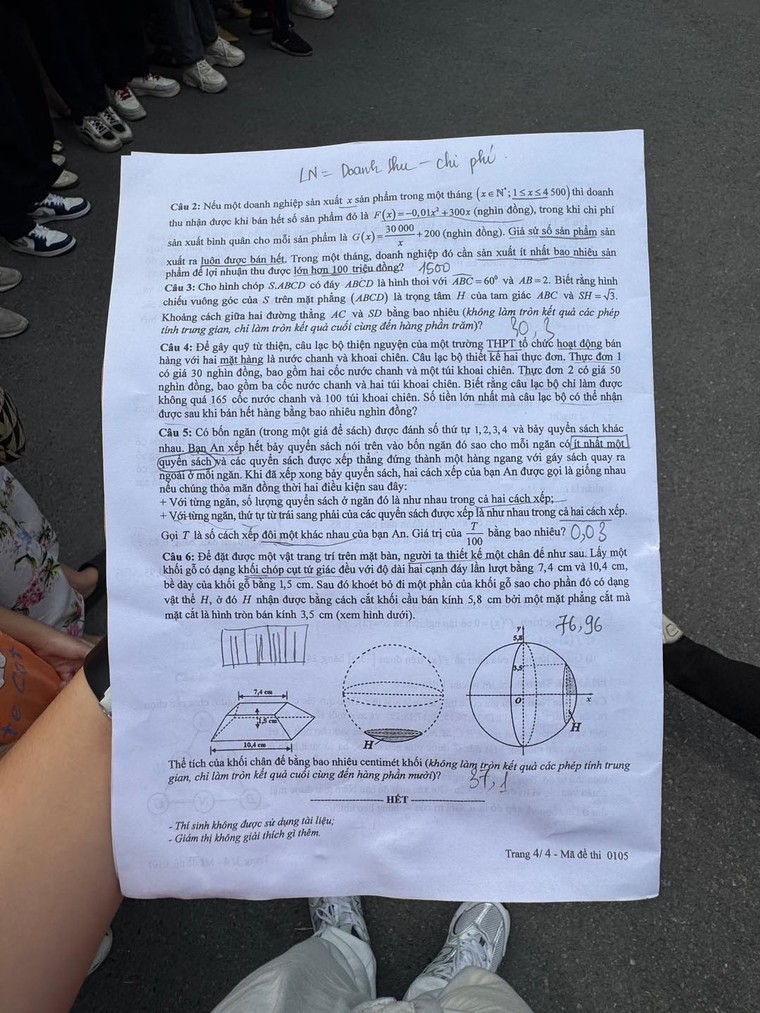 LN = Doanh thu - chi phí.
Câu 2: Nếu một doanh nghiệp sản xuất x sản phẩm trong một tháng (x∈ℕ*; 1≤x≤4 500) thì doanh
thu nhận được khi bán hết số sản phẩm đó là F(x)=−0,01x²+300x (nghìn đồng), trong khi chi phí
sản xuất bình quân cho mỗi sản phẩm là G(x)=30 000/x+200 (nghìn đồng). Giả sử số sản phẩm sản
xuất ra luôn được bán hết. Trong một tháng, doanh nghiệp đó cần sản xuất ít nhất bao nhiêu sản
phẩm để lợi nhuận thu được lớn hơn 100 triệu đồng? 1500
Câu 3: Cho hình chóp S.ABCD có đáy ABCD là hình thoi với ABC=60⁰ và AB=2. Biết rằng hình
chiếu vuông góc của S trên mặt phẳng (ABCD) là trọng tâm H của tam giác ABC và SH=√3.
Khoảng cách giữa hai đường thẳng AC và SD bằng bao nhiêu (không làm tròn kết quả các phép
tính trung gian, chỉ làm tròn kết quả cuối cùng đến hàng phần trăm)? 30,3
Câu 4: Để gây quỹ từ thiện, câu lạc bộ thiện nguyện của một trường THPT tổ chức hoạt động bán
hàng với hai mặt hàng là nước chanh và khoai chiên. Câu lạc bộ thiết kế hai thực đơn. Thực đơn 1
có giá 30 nghìn đồng, bao gồm hai cốc nước chanh và một túi khoai chiên. Thực đơn 2 có giá 50
nghìn đồng, bao gồm ba cốc nước chanh và hai túi khoai chiên. Biết rằng câu lạc bộ chỉ làm được
không quá 165 cốc nước chanh và 100 túi khoai chiên. Số tiền lớn nhất mà câu lạc bộ có thể nhận
được sau khi bán hết hàng bằng bao nhiêu nghìn đồng?
Câu 5: Có bốn ngăn (trong một giá để sách) được đánh số thứ tự 1, 2, 3, 4 và bảy quyển sách khác
nhau. Bạn An xếp hết bảy quyển sách nói trên vào bốn ngăn đó sao cho mỗi ngăn có ít nhất một
quyển sách và các quyển sách được xếp thẳng đứng thành một hàng ngang với gáy sách quay ra
ngoài ở mỗi ngăn. Khi đã xếp xong bảy quyển sách, hai cách xếp của bạn An được gọi là giống nhau
nếu chúng thỏa mãn đồng thời hai điều kiện sau đây:
+ Với từng ngăn, số lượng quyển sách ở ngăn đó là như nhau trong cả hai cách xếp;
+ Với từng ngăn, thứ tự từ trái sang phải của các quyển sách được xếp là như nhau trong cả hai cách xếp.
Gọi T là số cách xếp đôi một khác nhau của bạn An. Giá trị của T/100 bằng bao nhiêu? 0,03
Câu 6: Để đặt được một vật trang trí trên mặt bàn, người ta thiết kế một chân đế như sau. Lấy một
khối gỗ có dạng khối chóp cụt tứ giác đều với độ dài hai cạnh đáy lần lượt bằng 7,4 cm và 10,4 cm,
bề dày của khối gỗ bằng 1,5 cm. Sau đó khoét bỏ đi một phần của khối gỗ sao cho phần đó có dạng
vật thể H, ở đó H nhận được bằng cách cắt khối cầu bán kính 5,8 cm bởi một mặt phẳng cắt mà
mặt cắt là hình tròn bán kính 3,5 cm (xem hình dưới).
76,96
y
5,8
3,5
7,4 cm
1,5 cm
O
x
10,4 cm
H
H
Thể tích của khối chân đế bằng bao nhiêu centimét khối (không làm tròn kết quả các phép tính trung
gian, chỉ làm tròn kết quả cuối cùng đến hàng phần mười)? 37,1
HẾT
- Thí sinh không được sử dụng tài liệu;
- Giám thị không giải thích gì thêm.
Trang 4/ 4 - Mã đề thi 0105